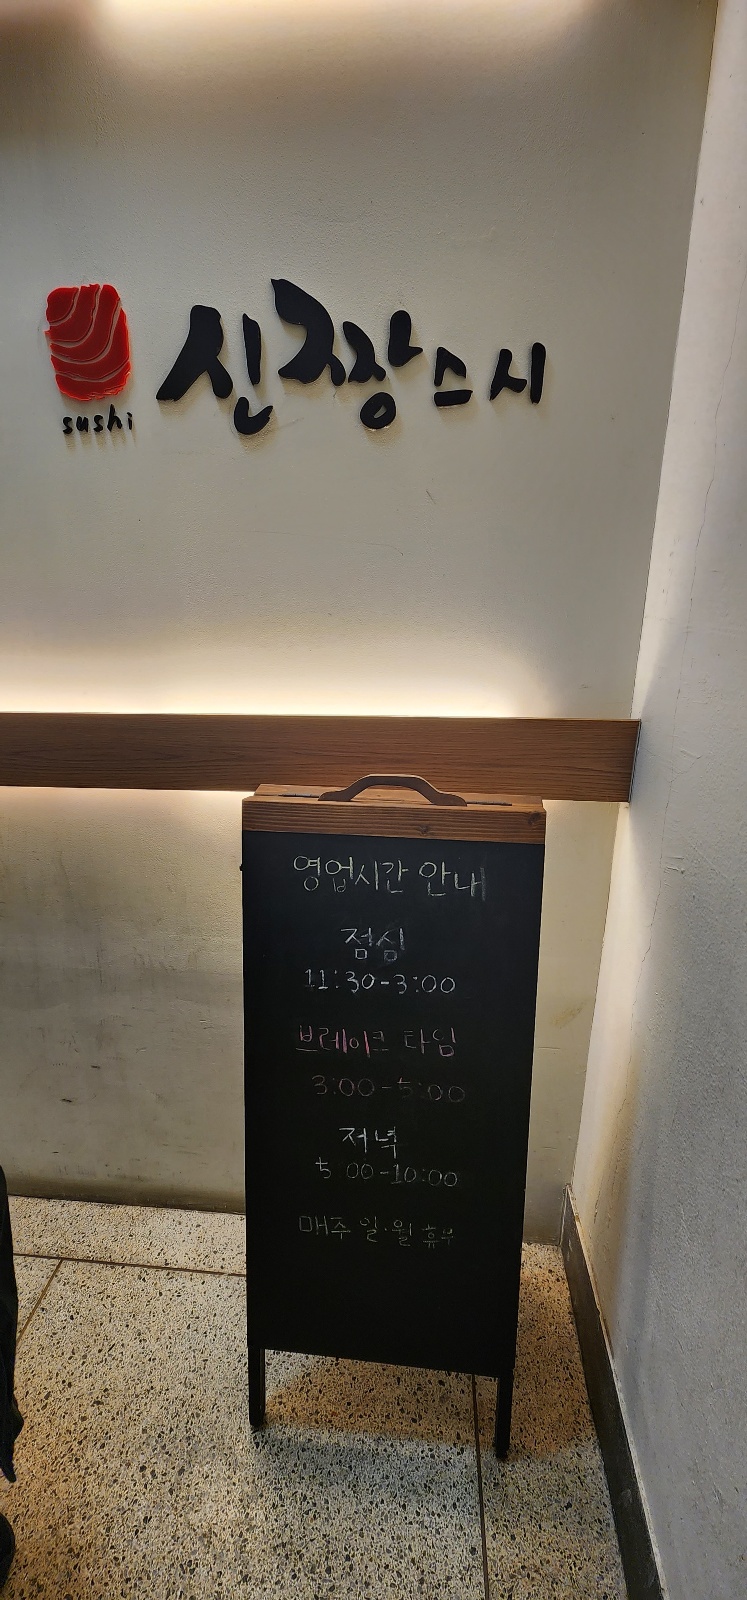 sushi
신짱스시
영업시간 안내
점심
11:30-3:00
브레이크 타임
3:00-5:00
저녁
5:00-10:00
매주 일·월 휴무